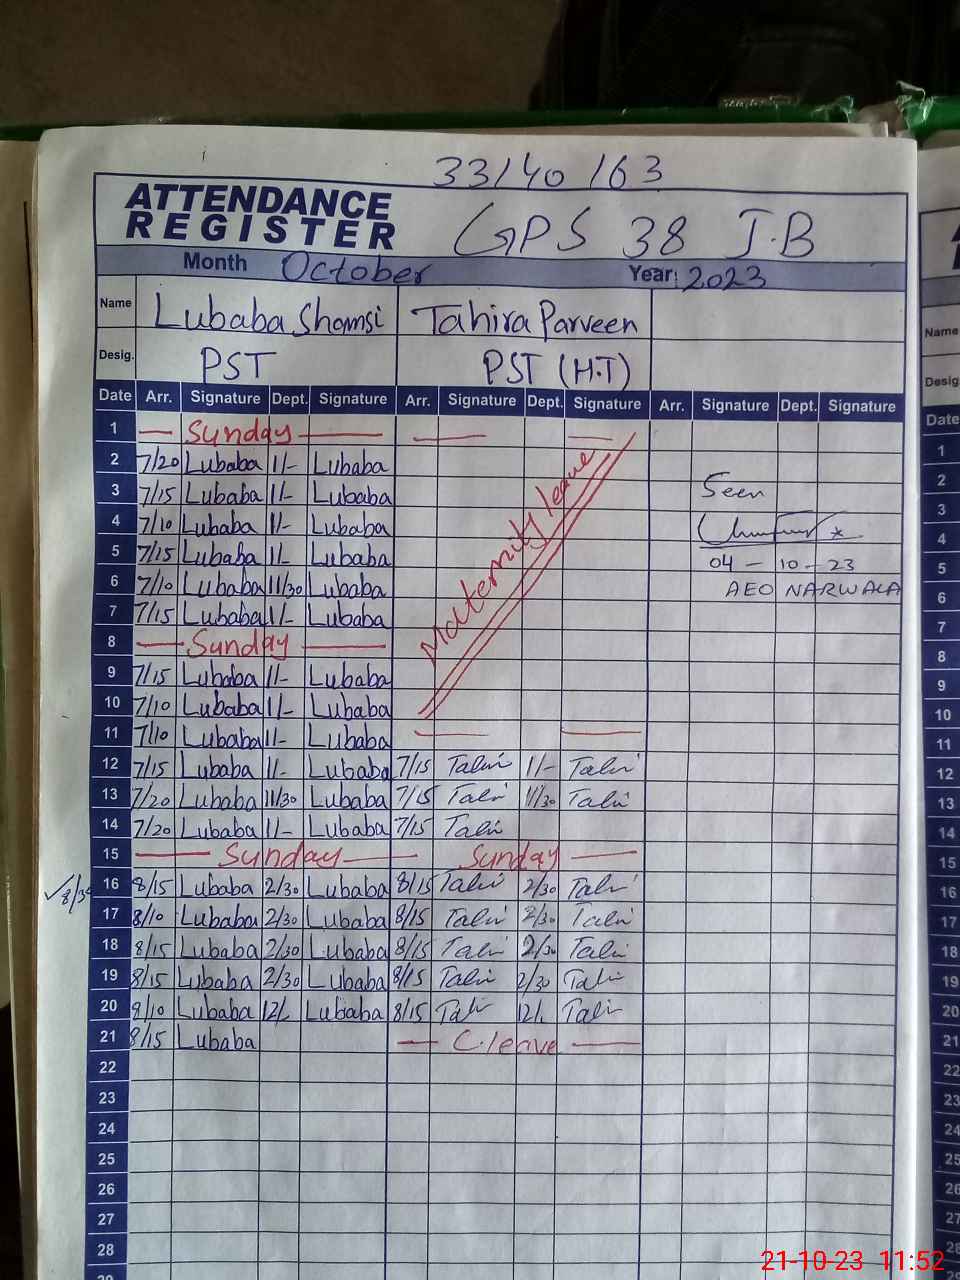 33/40/63
ATTENDANCE REGISTER GPS 38 J.B
Month October Year: 2023
Name Lubaba Shamsi Tahira Parveen
Desig. PST PST (H.T)
Date Arr. Signature Dept. Signature Arr. Signature Dept. Signature Arr. Signature Dept. Signature
1 — Sunday —
2 7/20 Lubaba 1/- Lubaba
3 7/15 Lubaba 1/- Lubaba Seen
4 7/10 Lubaba 1/- Lubaba
5 7/15 Lubaba 1/- Lubaba 04 - 10 - 23
6 7/10 Lubaba 11/30 Lubaba AEO NARWALA
7 7/15 Lubaba 1/- Lubaba
Maternity leave
8 — Sunday —
9 7/15 Lubaba 1/- Lubaba
10 7/10 Lubaba 1/- Lubaba
11 7/10 Lubaba 1/- Lubaba
12 7/15 Lubaba 1/- Lubaba 7/15 Tahir 1/- Tahir
13 7/20 Lubaba 11/30 Lubaba 7/15 Tahir 11/30 Tahir
14 7/20 Lubaba 1/- Lubaba 7/15 Tahir
15 — Sunday — Sunday —
8/30 16 8/15 Lubaba 2/30 Lubaba 8/15 Tahir 2/30 Tahir
17 8/10 Lubaba 2/30 Lubaba 8/15 Tahir 2/30 Tahir
18 8/15 Lubaba 2/30 Lubaba 8/15 Tahir 2/30 Tahir
19 8/15 Lubaba 2/30 Lubaba 8/15 Tahir 2/30 Tahir
20 8/10 Lubaba 12/- Lubaba 8/15 Tahir 12/- Tahir
21 8/15 Lubaba — C.leave —
22
23
24
25
26
27
28
Name
Desig.
Date
1
2
3
4
5
6
7
8
9
10
11
12
13
14
15
16
17
18
19
20
21
22
23
24
25
26
27
28
21-10-23 11:52